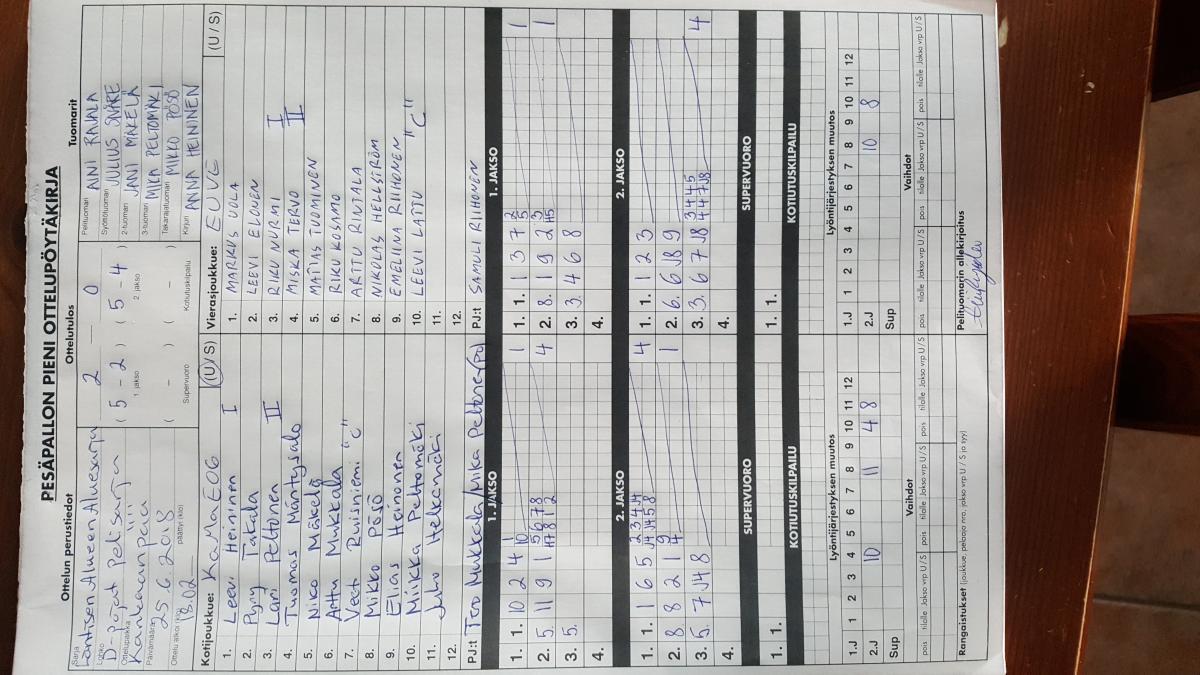 PESÄPALLON PIENI OTTELUPÖYTÄKIRJA
Ottelun perustiedot
Ottelutulos
Tuomarit
Sarja
Läntisen Alueen Aluesarja
Lohko
D-pojat Pelisarja
Ottelupaikka
Kankaanpää
Päivämäärä
25.6.2018
Ottelu alkoi (klo)
18.02
päättyi (klo)
2 — 0
( 5 - 2 ) ( 5 - 4 )
1. jakso
2. jakso
( - ) ( - )
Supervuoro
Kotiutuskilpailu
Pelituomari
ANI RAJALA
Syöttötuomari
JULIUS SNÅRE
2-tuomari
JANI MÄKELÄ
3-tuomari
MIKA PELTOMÄKI
Takarajatuomari
MIKKO PÖSÖ
Kirjuri
ANNA HEININEN
Kotijoukkue: KaMaE06 (U / S)
1. Leevi Heininen I
2. Pyry Takala
3. Lari Peltonen II
4. Tuomas Mäntysalo
5. Niko Mäkelä
6. Arttu Mukkala
7. Veet Ruisniemi "C"
8. Mikko Pösö
9. Elias Heinonen
10. Miikka Peltomäki
11. Juho Helkemäki
12.
PJ:t Tero Mukkala/Mika Peltonen(po)
Vierasjoukkue: EUVE (U / S)
1. MARKUS UOLA
2. LEEVI ELONEN
3. RIKU NURMI I
4. MISKA TERVO II
5. MATIAS TUOMINEN
6. RIKU KOSAMO
7. ARTTU RINTALA
8. NIKOLAS HELLSTRÖM
9. EMELIINA RIIHONEN
10. LEEVI LAITU "C"
11.
12.
PJ:t SAMULI RIIHONEN
1. JAKSO
1. 1. 10 2 4 1
2. 5. 11 9 1
4
3. 5.
4.
1. JAKSO
1. 1. 1 3 7
1
2. 8. 1 9 2
1
3. 3. 4 6 8
4.
2. JAKSO
1. 1. 1 6 5
4
2. 8. 8 2 1
1
3. 5. 7 J4 8
4.
2. JAKSO
1. 1. 1 2 3
2. 6. 6 J8 9
3. 3. 6 7 J8
4
4.
SUPERVUORO
1. 1.
SUPERVUORO
1. 1.
KOTIUTUSKILPAILU
KOTIUTUSKILPAILU
Lyöntijärjestyksen muutos
1.J 1 2 3 4 5 6 7 8 9 10 11 12
2.J 10 11 4 8
Sup
Lyöntijärjestyksen muutos
1.J 1 2 3 4 5 6 7 8 9 10 11 12
2.J 10 8
Sup
Vaihdot
pois tilalle Jakso vrp U / S pois tilalle Jakso vrp U / S pois tilalle Jakso vrp U / S
Vaihdot
pois tilalle Jakso vrp U / S pois tilalle Jakso vrp U / S pois tilalle Jakso vrp U / S
Rangaistukset (joukkue, pelaaja nro, jakso vrp U / S ja syy)
Pelituomarin allekirjoitus